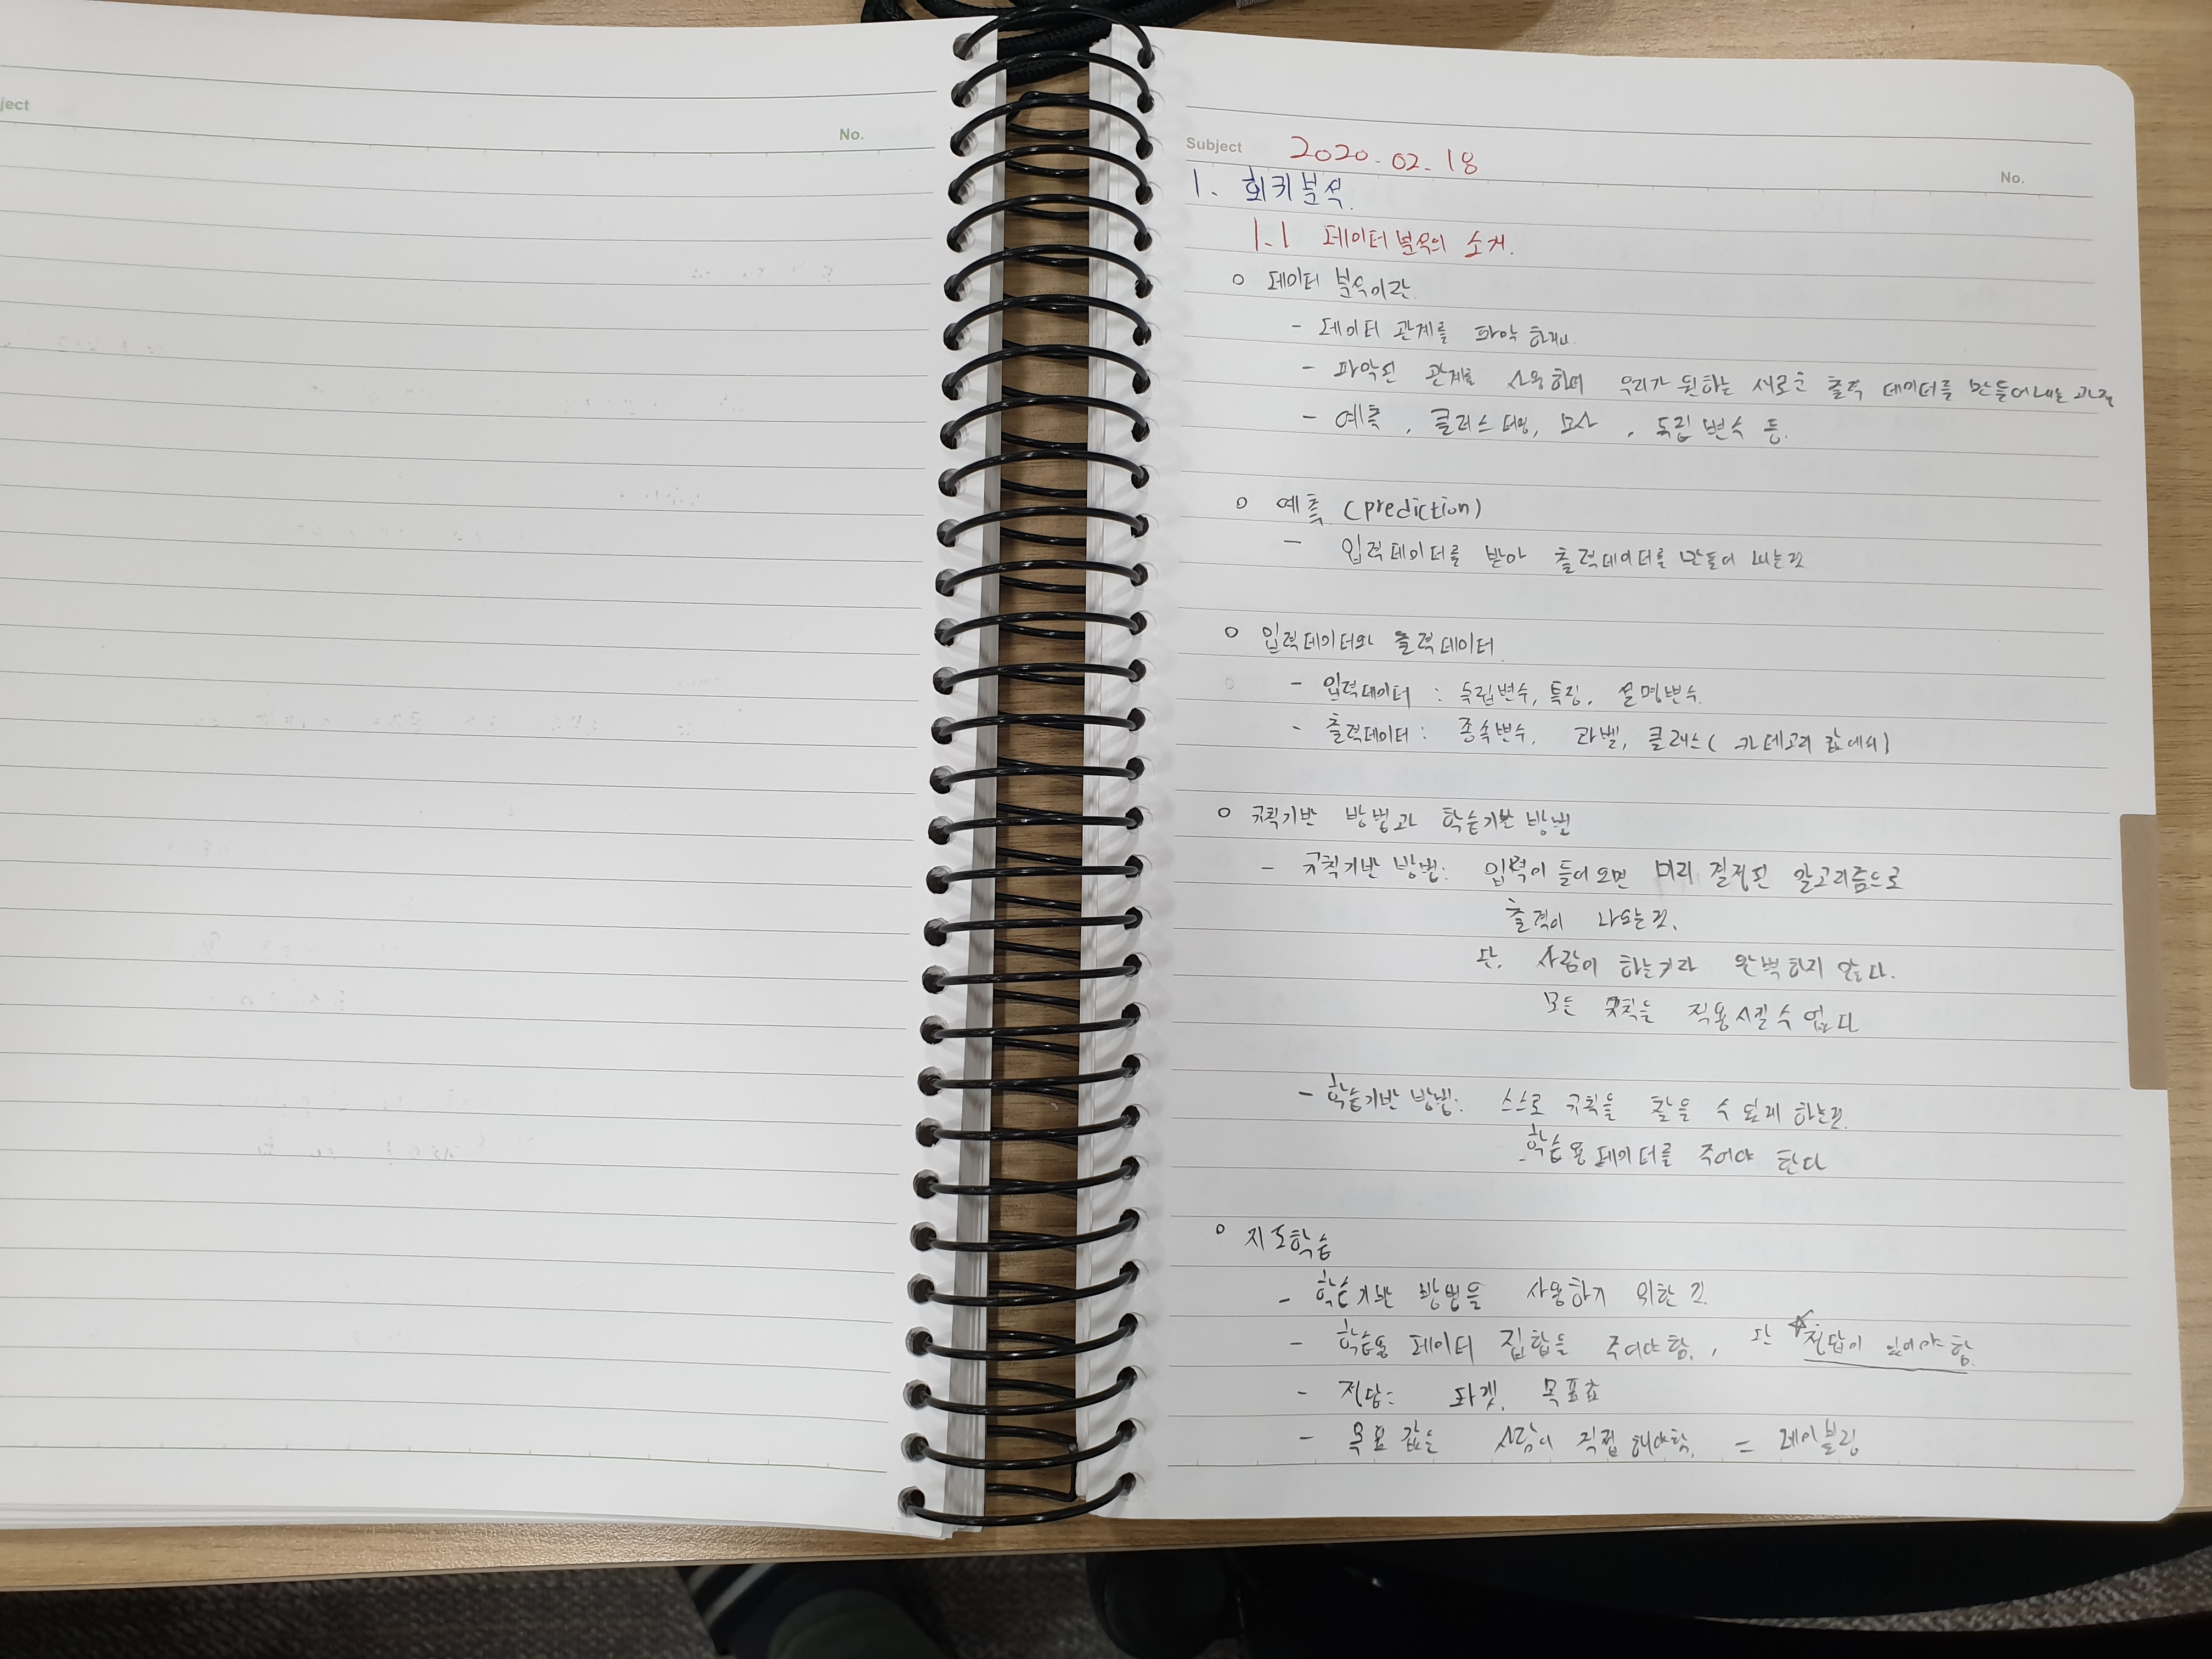 ject
No.
Subject 2020. 02. 18
No.
1. 회귀분석.
1.1 데이터분석의 소개.
○ 데이터 분석이란
- 데이터 관계를 파악 하거나
- 파악된 관계를 사용하여 우리가 원하는 새로운 출력 데이터를 만들어내는 과정
- 예측, 클러스터링, 모사, 독립변수 등.
○ 예측 (prediction)
- 입력데이터를 받아 출력데이터를 만들어 내는것
○ 입력데이터와 출력데이터
- 입력데이터 : 독립변수, 특징, 설명변수.
- 출력데이터 : 종속변수, 라벨, 클래스( 카테고리 값에서)
○ 규칙기반 방법과 학습기반 방법
- 규칙기반 방법: 입력이 들어오면 미리 결정된 알고리즘으로
출력이 나오는것.
단. 사람이 하는거라 완벽하지 않다.
모든 규칙을 적용시킬 수 없다
- 학습기반 방법: 스스로 규칙을 찾을 수 있게 하는것.
학습용 데이터를 주어야 한다
○ 지도학습
- 학습기반 방법을 사용하기 위한 것.
- 학습용 데이터 집합을 주어야함, 단 ☆정답이 있어야 함.
- 정답: 타겟, 목표값
- 목표 값은 사람이 직접 해야함. = 레이블링